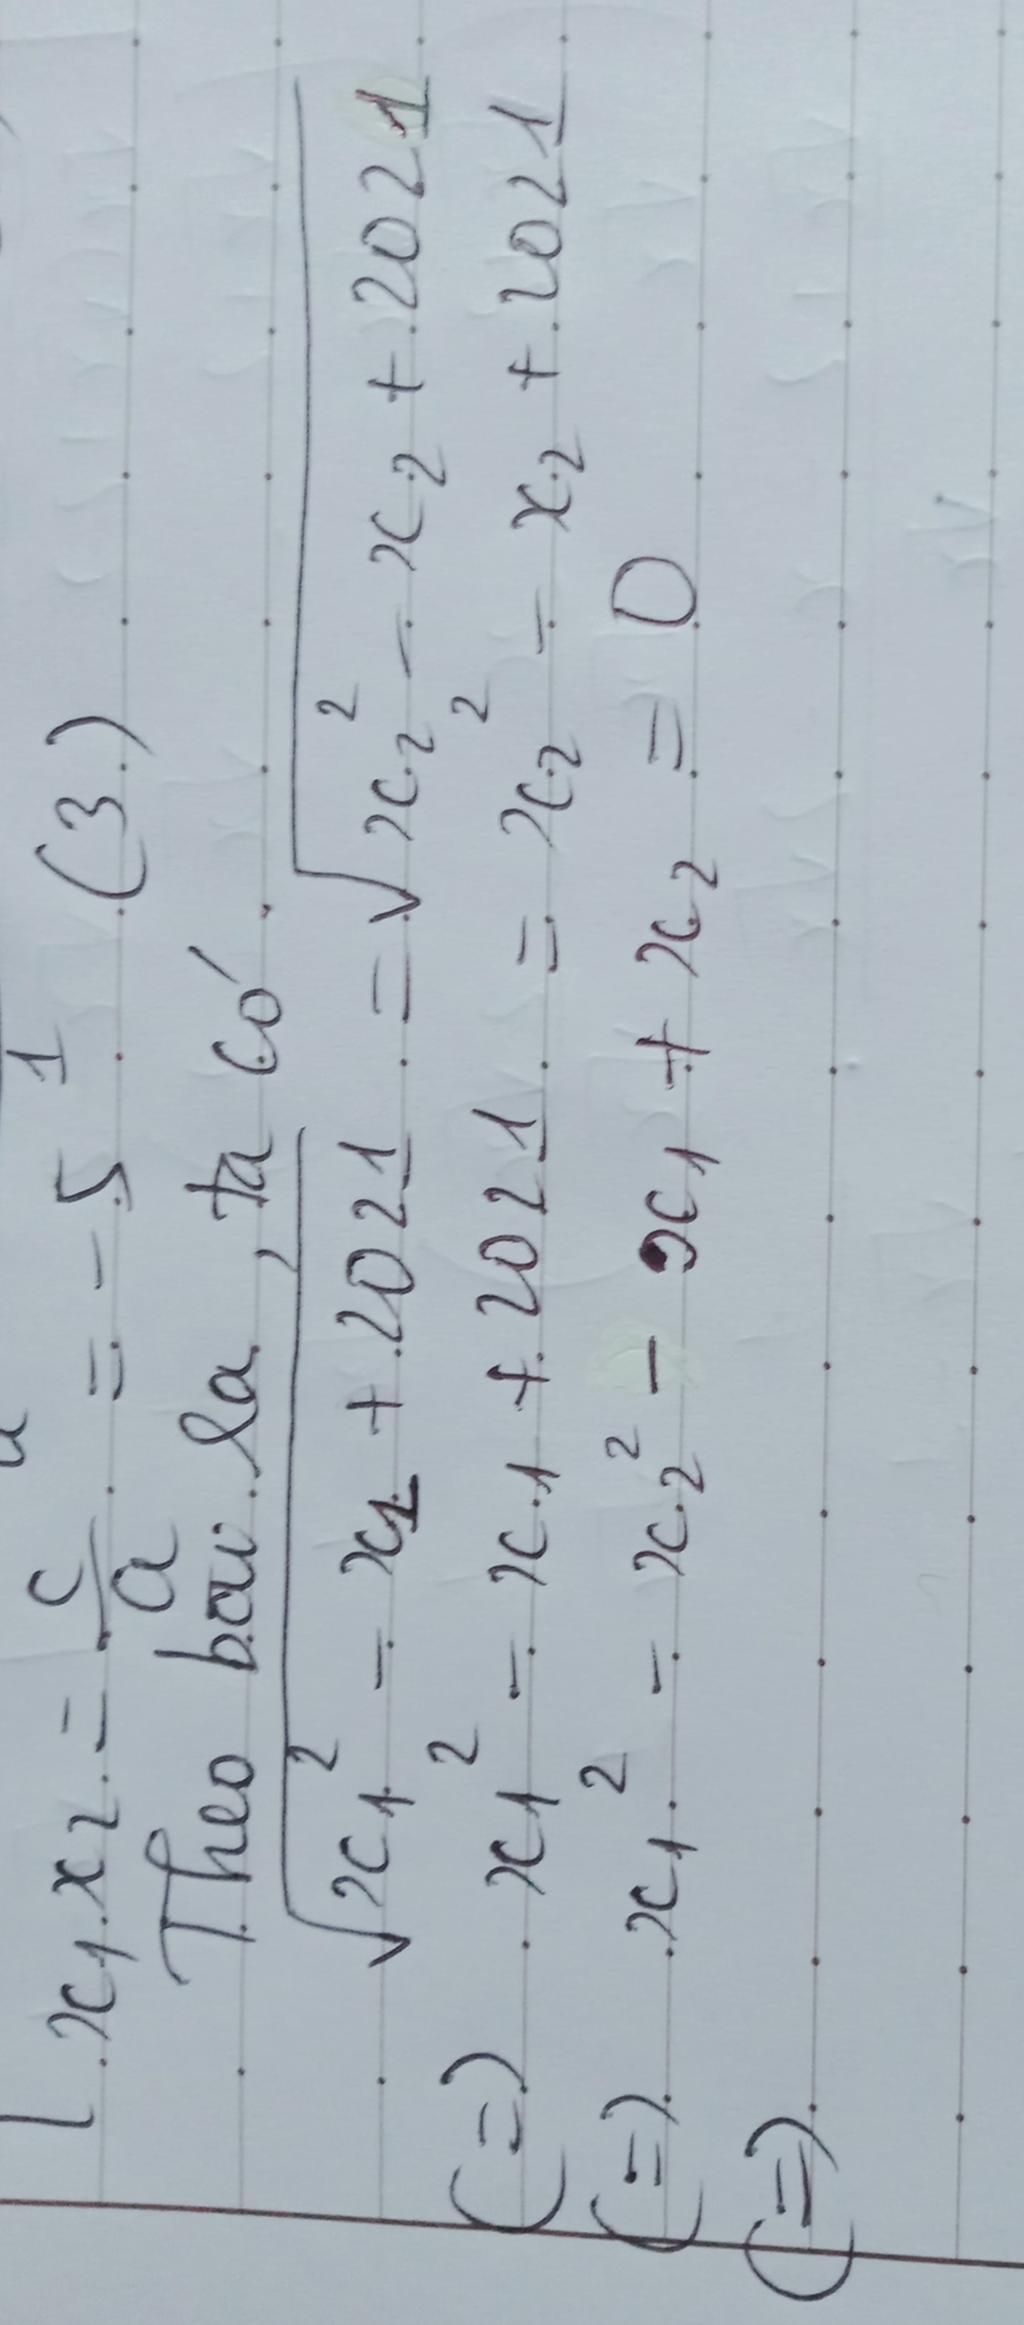 x₁.x₂ = c/a = -5 (3)
Theo bài ra, ta có
√(x₁² - x₁ + 2021) = √(x₂² - x₂ + 2021)
(=) x₁² - x₁ + 2021 = x₂² - x₂ + 2021
(=) x₁² - x₂² - x₁ + x₂ = 0
(=)